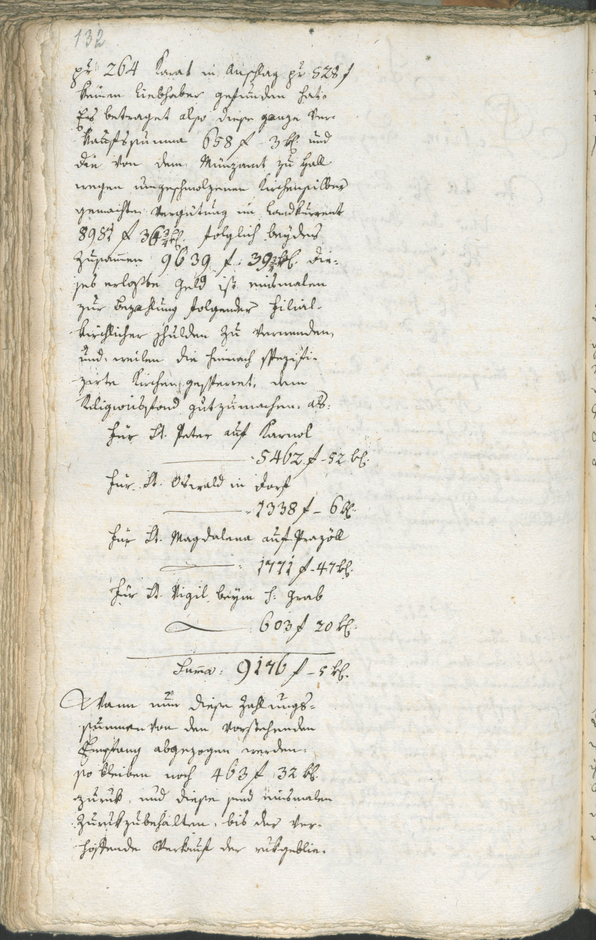 132
pr 264 Karat in Anschlag pr 528 f
keinen Liebhaber gefunden hat.
Es betraget also diese ganze Ver-
kaufssumma 658 f - 3 kr. und
die von dem Münzamt zu Hall
wegen eingeschmolzenen Kirchensilber
gemachten Vergütung in Landkurrent
8981 f 36 2/4 kr. folglich beydes
zusammen 9639 f: 39 2/4 kr. Die-
ses erlößte Geld ist nunmalen
zur Bezahlung folgender Filial-
kirchlicher Schulden zu verwenden,
und weilen die hienach spezifi-
zirte Kirchen gesperret, dem
Religionsfond gutzumachen. als:
Für St. Peter auf Karnol
5462 f - 52 kr.
Für St. Oswald in Dorf
1338 f - 6 kr.
Für St. Magdalena auf
1771 f - 47 kr.
Für St. Vigil beym h: Grab
603 f 20 kr.
Suma: 9176 f - 5 kr.
Wann nun diese Zahlungs-
summen von den vorstehenden
Empfang abgezogen werden:
so bleiben noch 463 f 32 kr.
zurück, und diese sind nunmalen
zurückzubehalten, bis der ver-
hoffende Verkauf der rükgeblie-